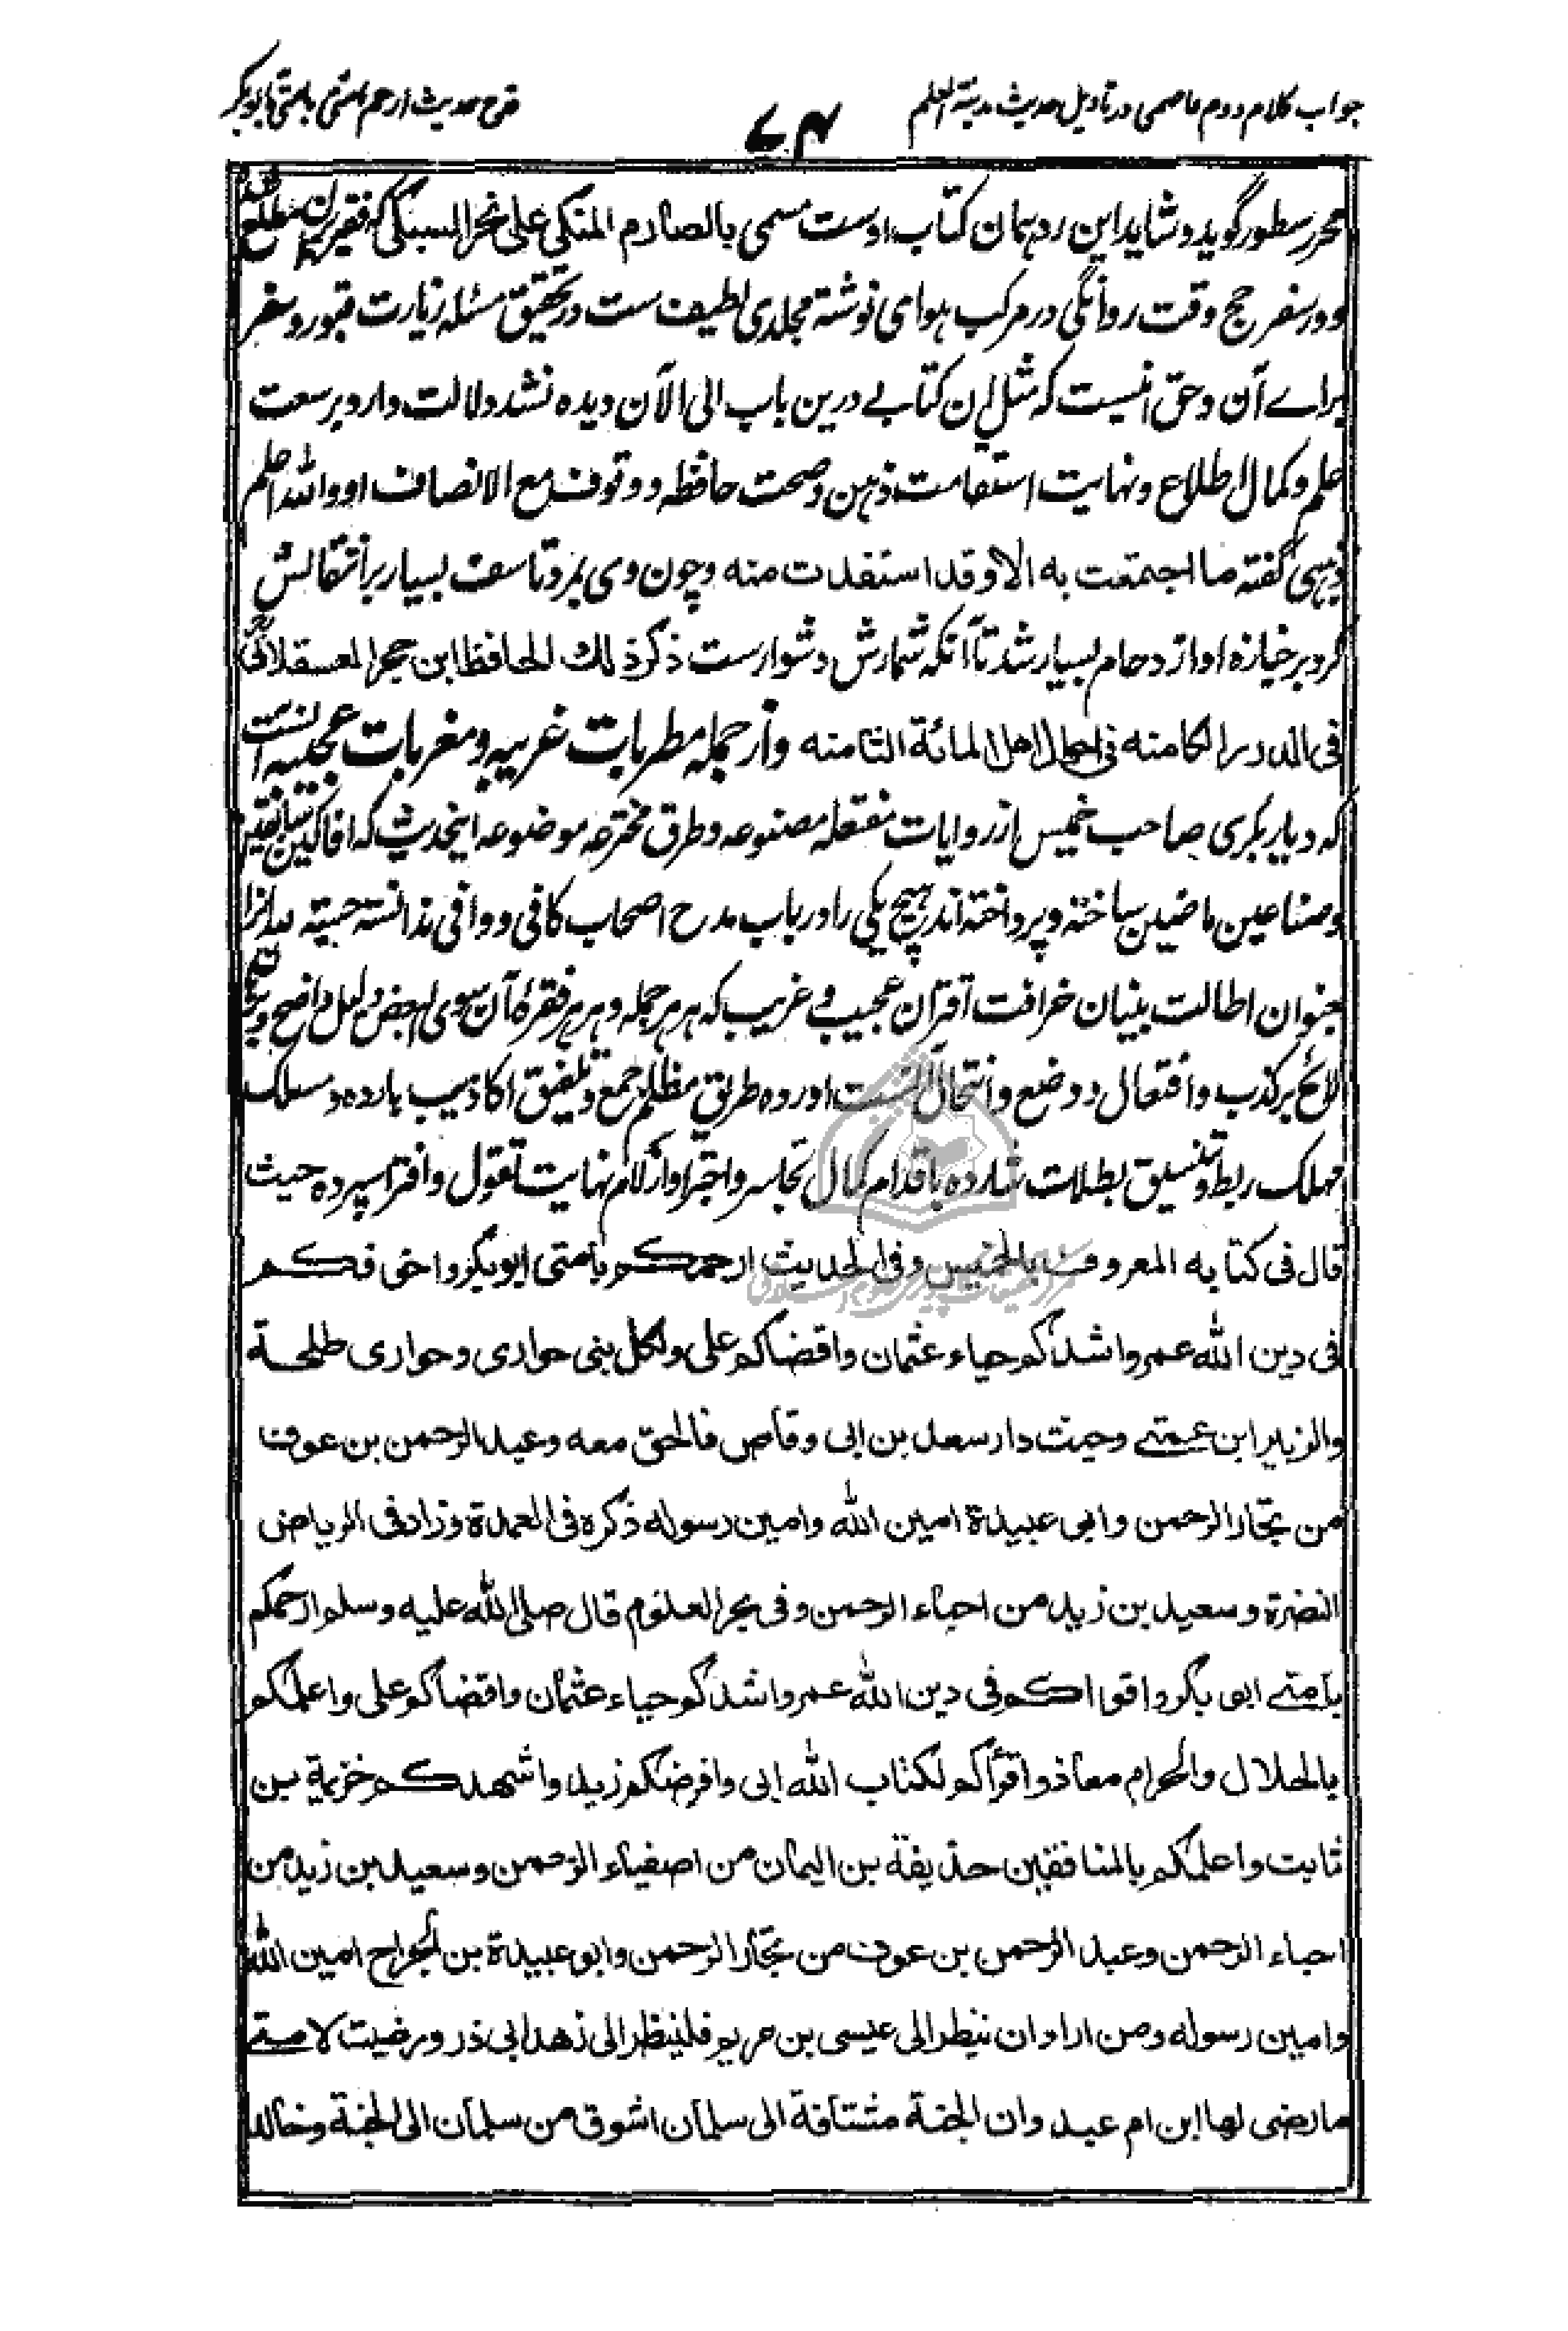 جواب کلام دوم عاصمی در تاویل حدیث مدینة العلم
۷۰۴
قدح حدیث ارحم امتی بامتی ابوبکر
محرر سطور گوید و شاید این رد همان کتاب اوست مسمی بالصارم المنکی علی نحر السبکی که فقیر بران مطلع شده
و در سفر حج وقت روانگی در مرکب هوای نوشته مجلدی لطیف ست در تحقیق مسئله زیارت قبور و سفر
براے آن و حق انیست که مثل این کتابے درین باب الی الآن دیده نشد دلالت دارد بر سعت
علم و کمال اطلاع و نهایت استقامت ذهن و صحت حافظه و وقوف مع الانصاف او والله اعلم
ذهبی گفته ما اجتمعت به الا وقد استفدت منه و چون وی بمرد تاسف بسیار بر انتقالش
کرد بر جنازه او ازدحام بسیار شد تا آنکه شمارش دشوارست ذکر ذلك الحافظ ابن حجر العسقلانی
فی الدرر الکامنه فی اهل المائة الثامنه و از جمله مطربات غریبه و مغربات عجیبه آنست
که دیار بکری صاحب خمیس از روایات مفتعله مصنوعه و طرق مخترعه موضوعه اینحدیث که افاکین
و صناعین ماضین ساخته و پرداخته اند هیچ یکی را در باب مدح اصحاب کافی و وافی ندانسته
بعنوان اطالت بنیان خرافت اقتران عجیب و غریب که هر هر جمله و هر هر فقرهٔ آن سوی البعض دلیل واضح و
لائح بر کذب و افتعال و وضع و انتحال آنست اورده طریق مظلم جمع و تلفیق اکاذیب بارده و مسلک
مهلک ربط و تنسیق بطلات شارده باقدام کمال تجاسر و اجترا و ازلام نهایت تقول و افترا سپرده حیث
قال فی کتابه المعروف بالخمیس وفی الحدیث ارحمکم بامتی ابوبکر واخی فکم
فی دین الله عمر واشدکم حیاء عثمان واقضاکم علی ولکل نبی حواری وحواری طلحة
والزبیر ابن عمتے وحیث دار سعد بن ابی وقاص فالحق معه وعبد الرحمن بن عوف
من تجار الرحمن وابی عبیدة امین الله وامین رسوله ذکره فی العمدة وزاد فی الریاض
النضرة وسعید بن زید من احباء الرحمن وفی بحر العلوم قال صلی الله علیه وسلم ارحمکم
بامتے ابو بکر واقواکم فی دین الله عمر واشدکم حیاء عثمان واقضاکم علی واعلمکم
بالحلال والحرام معاذ واقرأکم لکتاب الله ابی وافرضکم زید واشهدکم خزیمة بن
ثابت واعلمکم بالمنافقین حذیفة بن الیمان من اصفیاء الرحمن وسعید بن زید من
احباء الرحمن وعبد الرحمن بن عوف من تجار الرحمن وابو عبیدة بن الجراح امین الله
وامین رسوله ومن اراد ان ینظر الی عیسی بن مریم فلینظر الی زهد ابی ذر ورضیت لامتے
ما رضی لها ابن ام عبد وان الجنة مشتاقة الی سلمان اشوق من سلمان الی الجنة وخالد